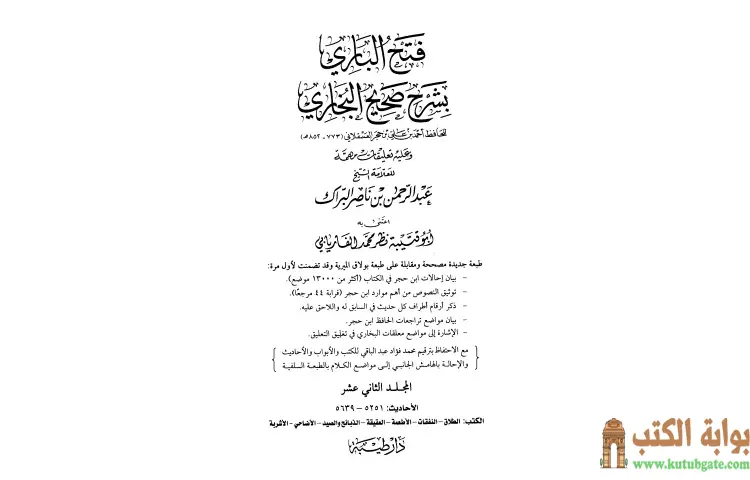 فتح الباري
بشرح صحيح البخاري
للحافظ أحمد بن علي بن حجر العسقلاني (٧٧٣ - ٨٥٢ هـ)
وعليه تعليقات مهمة
للعلامة الشيخ
عبد الرحمن بن ناصر البراك
اعتنى به
أبو قتيبة نظر محمد الفاريابي
طبعة جديدة مصححة ومقابلة على طبعة بولاق الميرية وقد تضمنت لأول مرة:
- بيان إحالات ابن حجر في الكتاب (أكثر من ١٣٠٠٠ موضع).
- توثيق النصوص من أهم موارد ابن حجر (قرابة ٤٤ مرجعًا).
- ذكر أرقام أطراف كل حديث في السابق له واللاحق عليه.
- بيان مواضع تراجعات الحافظ ابن حجر.
- الإشارة إلى مواضع معلقات البخاري في تغليق التعليق.
مع الاحتفاظ بترقيم محمد فؤاد عبد الباقي للكتب والأبواب والأحاديث
والإحالة بالهامش الجانبي إلى مواضع الكلام بالطبعة السلفية
المجلد الثاني عشر
الأحاديث: ٥٢٥١ - ٥٦٣٩
الكتب: الطلاق - النفقات - الأطعمة - العقيقة - الذبائح والصيد - الأضاحي - الأشربة
دار طيبة
بوابة الكتب
www.kutubgate.com